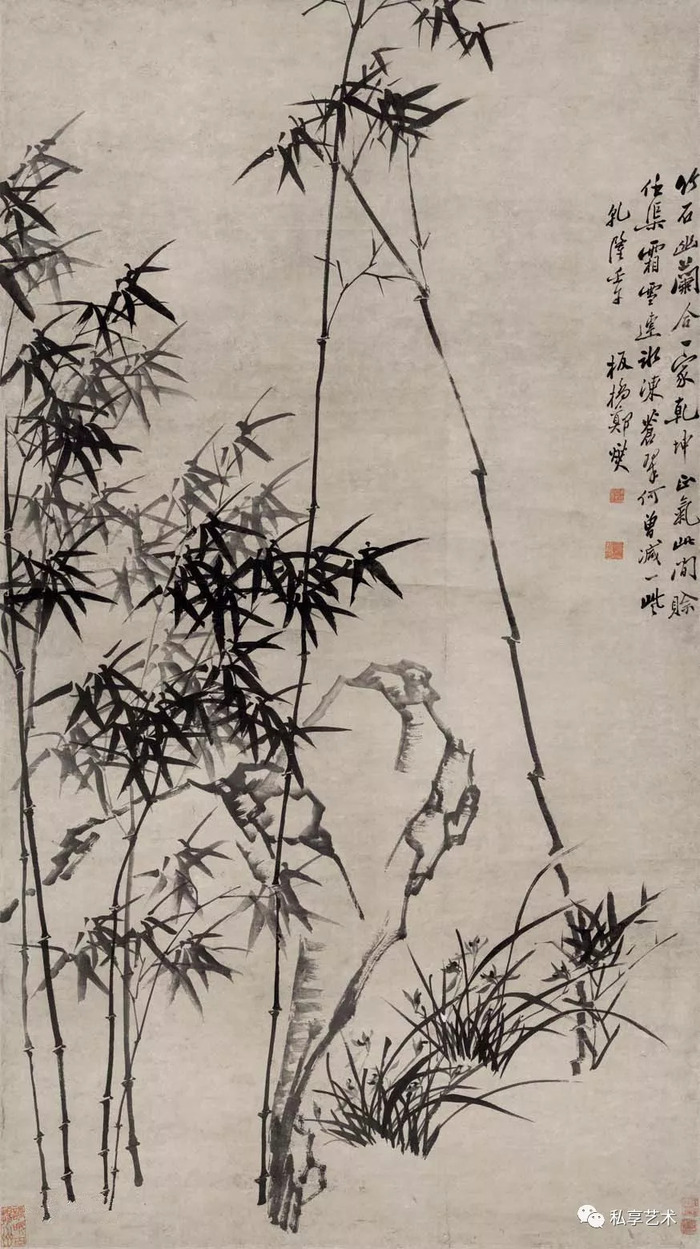 竹石幽蘭合一家乾坤正氣此間賒
任渠霜雪連冰凍蒼翠何曾減一些
乾隆壬午 板橋鄭燮
私享艺术